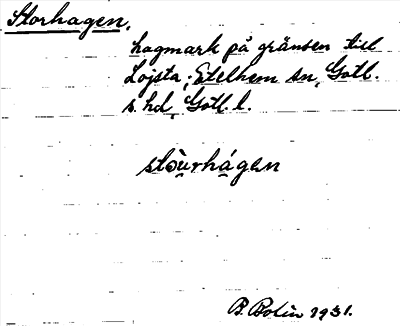 Storhagen.
hagmark på gränsen till
Lojsta; Etelhem sn, Gotl.
s. hd, Gotl. l.
stòurhágen
B. Bolin 1931.